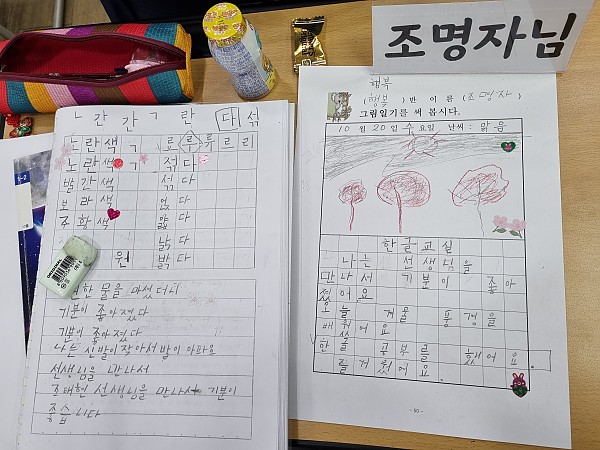 조명자님
행복
(행복) 반 이름 (조명자)
그림일기를 써 봅시다.
10월 20일 수요일 날씨: 맑음
한글교실
나는 선생님을
만나서 기분이 좋아
졌어요
오늘 겨울 풍경을
배웠어요
한글 공부를 했어요.
즐거웠어요.
- 90 -
ㄴ 간 간 ㄱ 란 다 섞
노란색 ㄱ 료 루 류 르 리
노란색 ㄱ 적다
빨간색 섞다
보라색 없다
주황색 얇다
낡다
원 밝다
한 물을 마셨더니
기분이 좋아졌다
기분이 좋아졌다
나는 신발이 작아서 발이 아파요
선생님을 만나서
조태현 선생님을 만나서 기분이
좋습니다